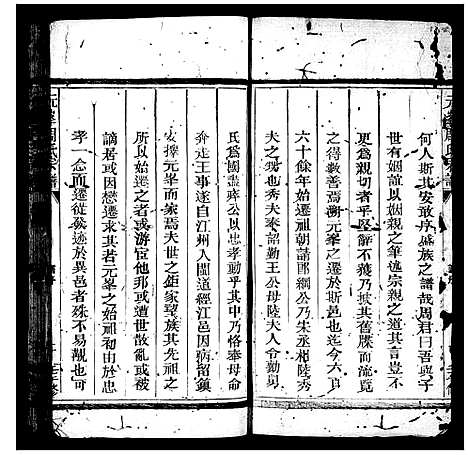 何人斯其安敢序盛族之譜哉周君曰吾與子
世有姻誼以姻親之筆述宗親之道其言豈不
更爲親切者乎堅辭不獲乃披其舊牒而流覽
之得數善焉溯元峯之遷於斯邑也迄今六百
六十餘年始遷祖朝請郎綱公乃朱丞相陸秀
夫之甥也秀夫奉詔勤王公母陸夫人令勷舅
氏爲國盡瘁公以忠孝勵乎其中乃恪奉母命
奔走王事遂自江州入閩道經江邑因病留鎮
安擇元峯而家焉夫世之鉅家望族其先祖之
所以始遷之者或游宦他邦或遭世散亂或被
謫居或因戀遷求其若元峯始祖初由於忠
孝一念而遷徙焉遂於異邑者殊不易覯也可
元峯周氏宗譜